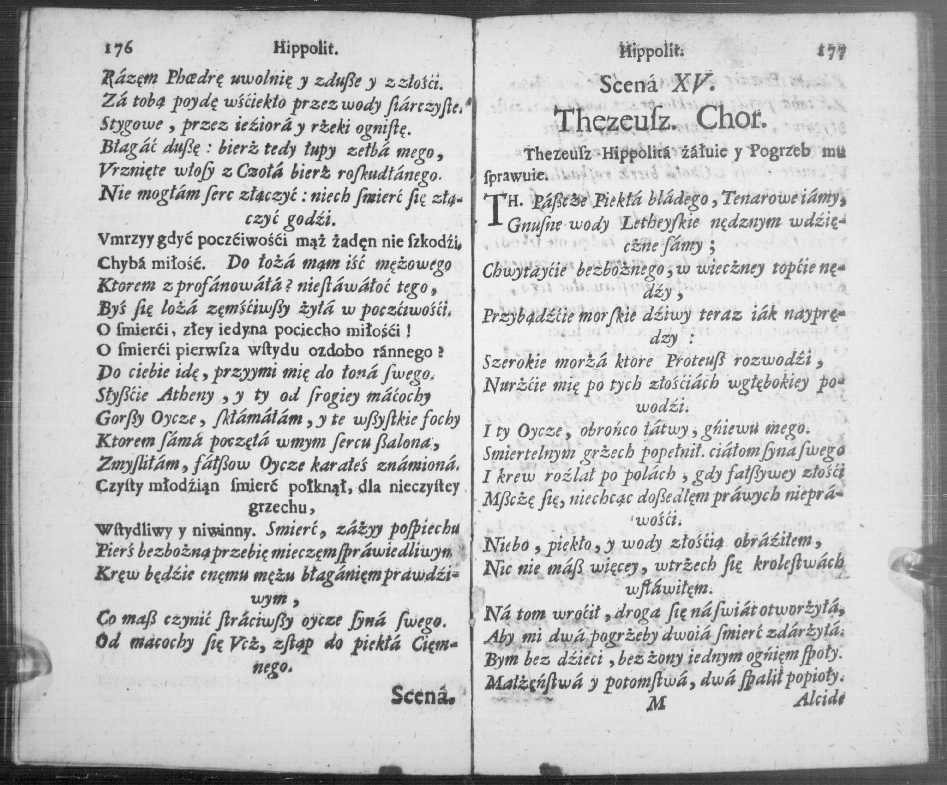 176 Hippolit.
Rázęm Phœdrę uwolnię y z dußę y z złośći.
Zá tobą poydę wśćiekło przez wody śiárczyste.
Stygowe, przez ieźiorá y rżeki ognistę.
Błagáć dußę: bierż tedy łupy zełbá mego,
Vrznięte włosy z Czołá bierż roskudłánego.
Nie mogłám serc złączyć: niech śmierć się złą-
czyć godźi.
Vmrzyy gdyć poczćiwośći mąż żadęn nie szkodźi,
Chybá miłość. Do łożá mąm iść mężowego
Ktorem z profánowáłá? niestáwáłoć tego,
Byś się lożá zęmśćiwßy żyłá w poczćiwośći.
O śmierći, złey iedyna pociecho miłośći!
O śmierći pierwsza wstydu ozdobo ránnego?
Do ciebie idę, przyymi mię do łoná swego.
Słyßćie Atheny, y ty od srogiey máćochy
Gorßy Oycze, skłámáłám, y te wßystkie fochy
Ktorem sámá poczęłá wmym sercu ßalona,
Zmysliłám, fáłßow Oycze karałeś známioná.
Czysty młodźiąn śmierć połknął, dla nieczystey
grzechu,
Wstydliwy y niwinny. Smierć, zážyy pośpiechu
Pierś bezbożną przebię mieczęm spráwiedliwym
Kręw będźie enęmu mężu błagániem prawdźi-
wym,
Co maß czynić stráciwßy oycze syná swego.
Od macochy się Vcż, zstąp do piekłá Cięm-
nego.
Scená.
Hippolit. 177
Scená XV.
Thezeusz. Chor.
Thezeusz Hippolitá żáłuie y Pogrzeb mu
sprawuie.
TH. Páßcże Piekłá bládego, Tenarowe iámy,
Gnusne wody Letheyskie nędznym wdźię-
cżne sámy;
Chwytayćie bezbożnego, w wiecżney topćie nę-
dźy,
Przybądźćie morskie dźiwy teraz iák nayprę-
dzy:
Szerokie morżá ktore Proteuß rozwodźi,
Nurżćie mię po tych złośćiách wgłębokiey po-
wodźi.
I ty Oycze, obrońco łátwy, gńiewu mego.
Smiertelnym grżech popełnił. ciáłom syna swego
I krew rozlał po polách, gdy fałßywey złośći
Mßcżę się, niechcąc doßedłęm práwych niepr​á-
wośći.
Niebo, piekło, y wody złośćią obráźiłem,
Nic nie máß więcey, wtrzech się krolestwách
wstáwiłęm.
Ná tom wroćił, droga się náświát otworżyłá,
Aby mi dwá pogrżeby dwoiá śmierć zdárżyłá.
Bym bez dźieci, bez żony iednym ogńięm społy.
Małżęństwá y potomstwá, dwá spalił popioły.
M Alcide